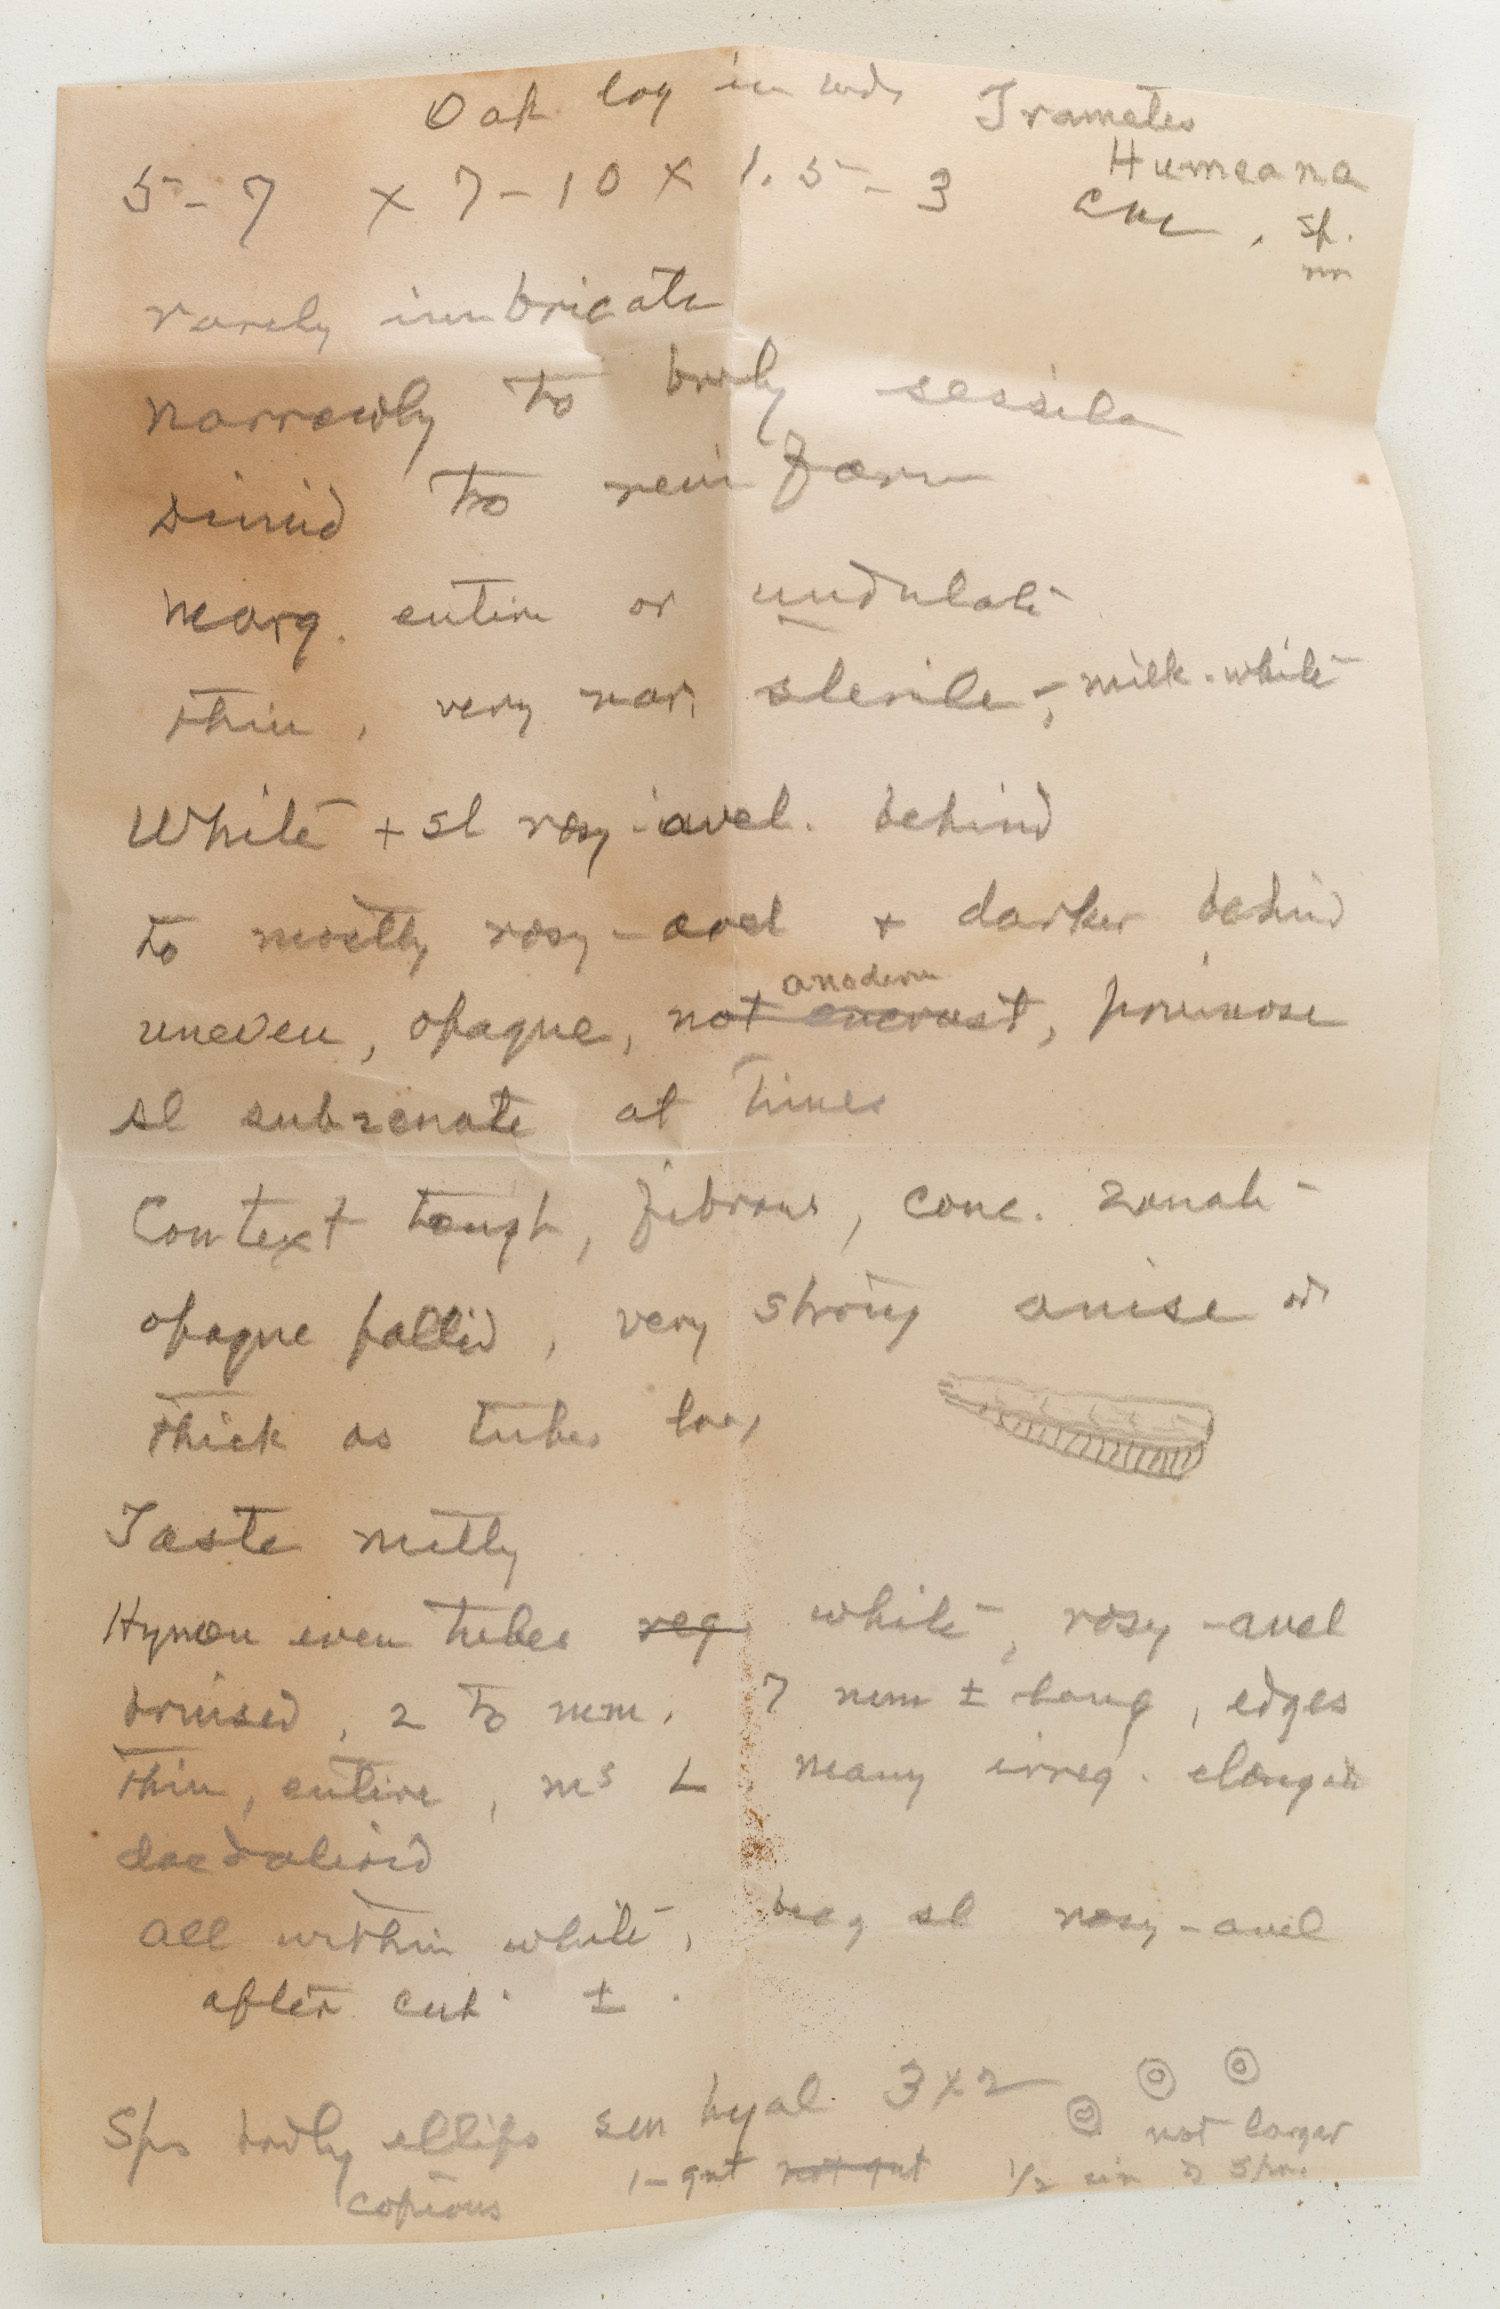 Oak log in wds Trametes
Humeana
5-7 x 7-10 x 1.5-3
sp.
nov
rarely imbricate
narrowly to brdly sessile
dimid to reniform
marg. entire or undulate
thin, very nar, sterile, milk-white
White + sl rosy-avel. behind
to mostly rosy-avel + darker behind
anoderm
uneven, opaque, not encrust, pruinose
sl subzonate at times
Context tough, fibrous, conc. zonate
opaque pallid, very strong anise od
thick as tubes long
Taste nutty
Hymen even tubes reg white, rosy-avel
bruised, 2 to mm. 7 mm ± long, edges
thin, entire, ms L, many irreg. elongate
daedaloid
all within white, becg sl rosy-avel
after cut ±.
Sps brdly ellips sm hyal 3x2
copious
1-gut not gut
not larger
1/2 sps.